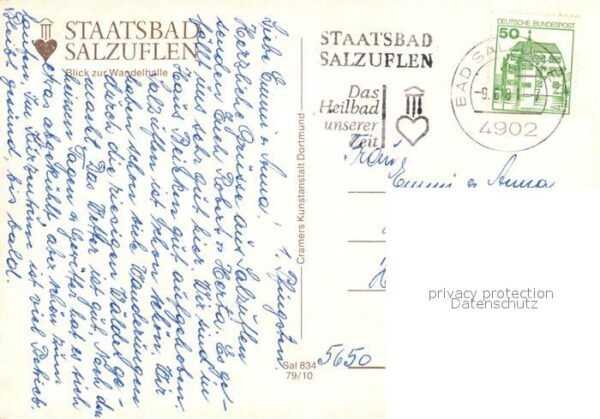 STAATSBAD
SALZUFLEN
Blick zur Wandelhalle
1. Pfingstag.
Liebe Emmi u. Anna!
Herzliche Grüße aus Salzuflen
senden Euch Robert u. Herta. Es ge-
fällt uns sehr gut hier. Wir sind im
Haus gut aufgehoben.
Salzuflen ist schon schön. Wir
haben schon viele Wanderungen
durch die riesigen Wälder ge-
macht. Das Wetter ist gut. Nach den
heissen Tagen u. Gewitter hat es sich
etwas abgekühlt, aber schön zum
laufen. Im Kurgarten ist viel Betrieb.
Bleibt gesund, bis bald.
Cramers Kunstanstalt Dortmund
Sal 834
79/10
STAATSBAD
SALZUFLEN
Das
Heilbad
unserer
Zeit
DEUTSCHE BUNDESPOST
50
BAD SALZUFLEN
-9.6.8
4902
Frau
Emmi u. Anna
5650
privacy protection
Datenschutz